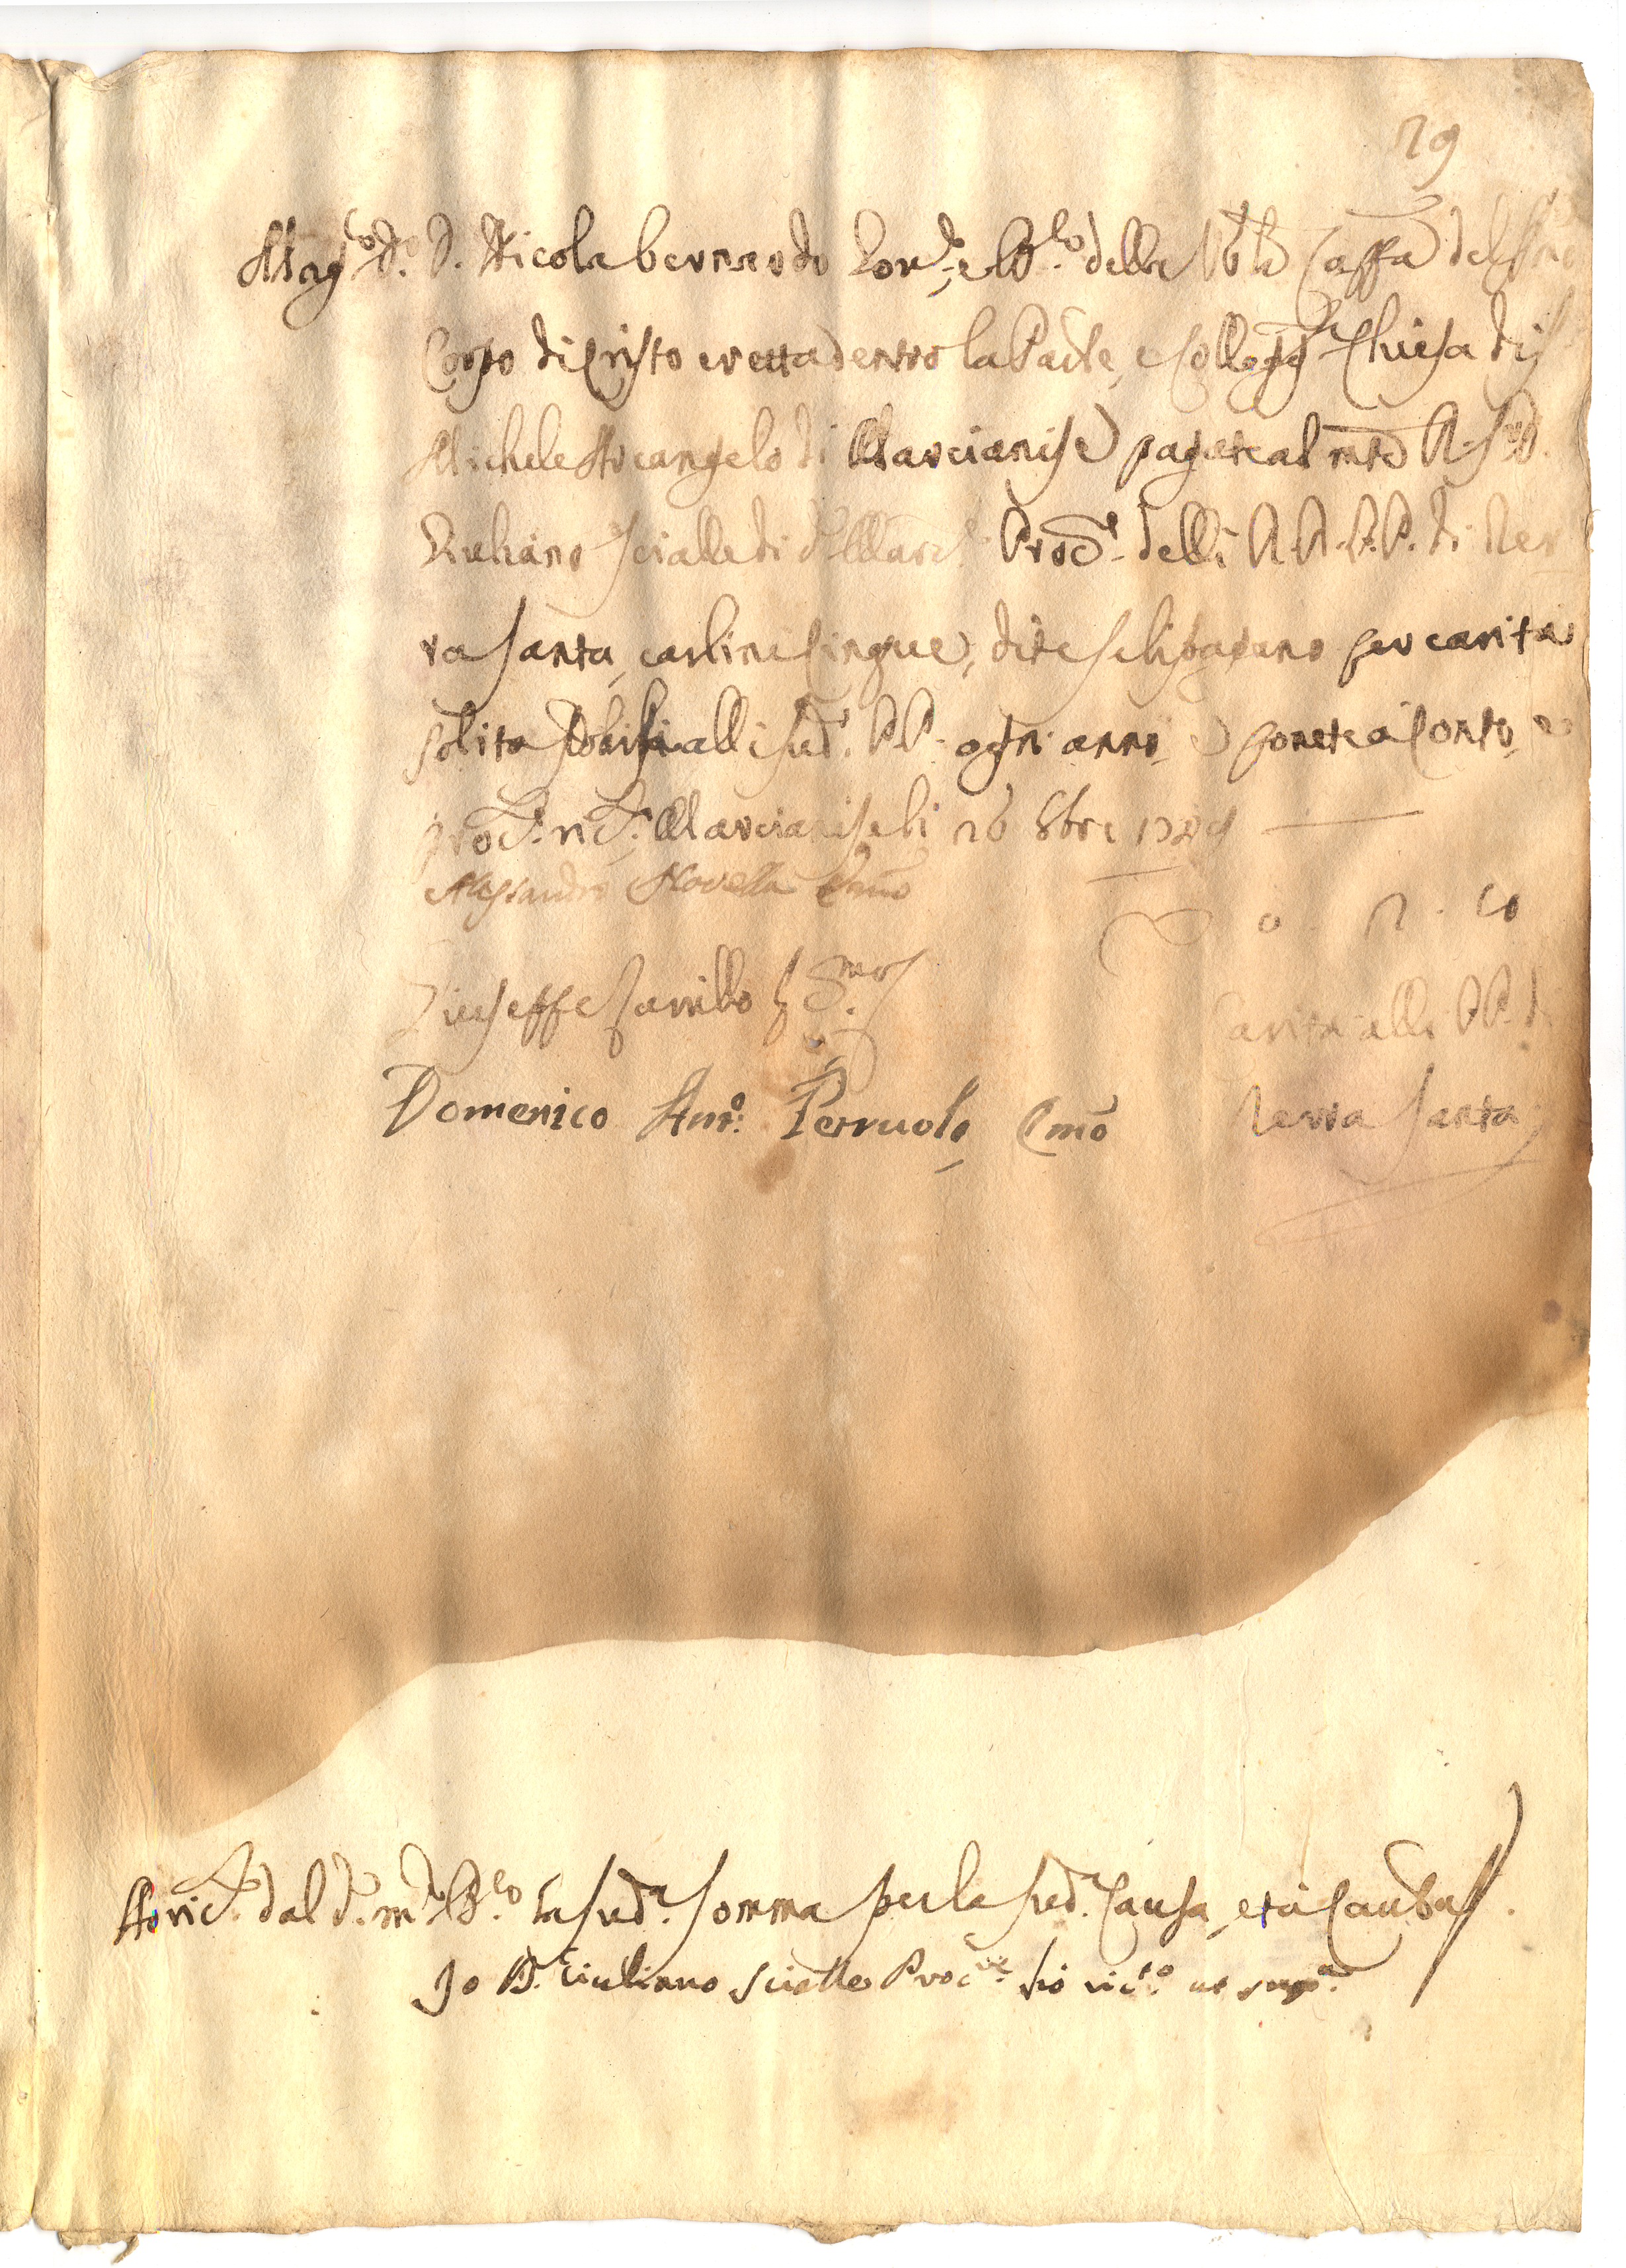 29
Mag.co D.r D. Nicola bernardo Lon.do e B.lo della V.le Cappa del
Corpo di Cristo eretta dentro la Parle, e Colleg.ta Chiesa di S.
Michele Arcangelo di Marcianise pagate al mto R. Sr. D.
Giuliano Scialla di d.o Marc.e Proc.e delli R.R. P.P. di Ter
ra Santa, carlini cinque, dite seli pagano per carita
solita darsi alli sud.i P.P. ogni anno, e ponete a conto, e
proc.e ric.a Marcianise li 26 8bre 1749
Alessandro Novella Ecmo
D 0 2. 10
Giuseppe Zarrillo
Carita alli P.P. di
Domenico Ant.o Perruolo Ecmo
Terra Santa
Ho ric.o dal d.o m.co B.lo la sud.a somma per la sud.a causa, et a cautela
Io D. Giuliano Scialla Proc.re hò ric.to ut sup.a